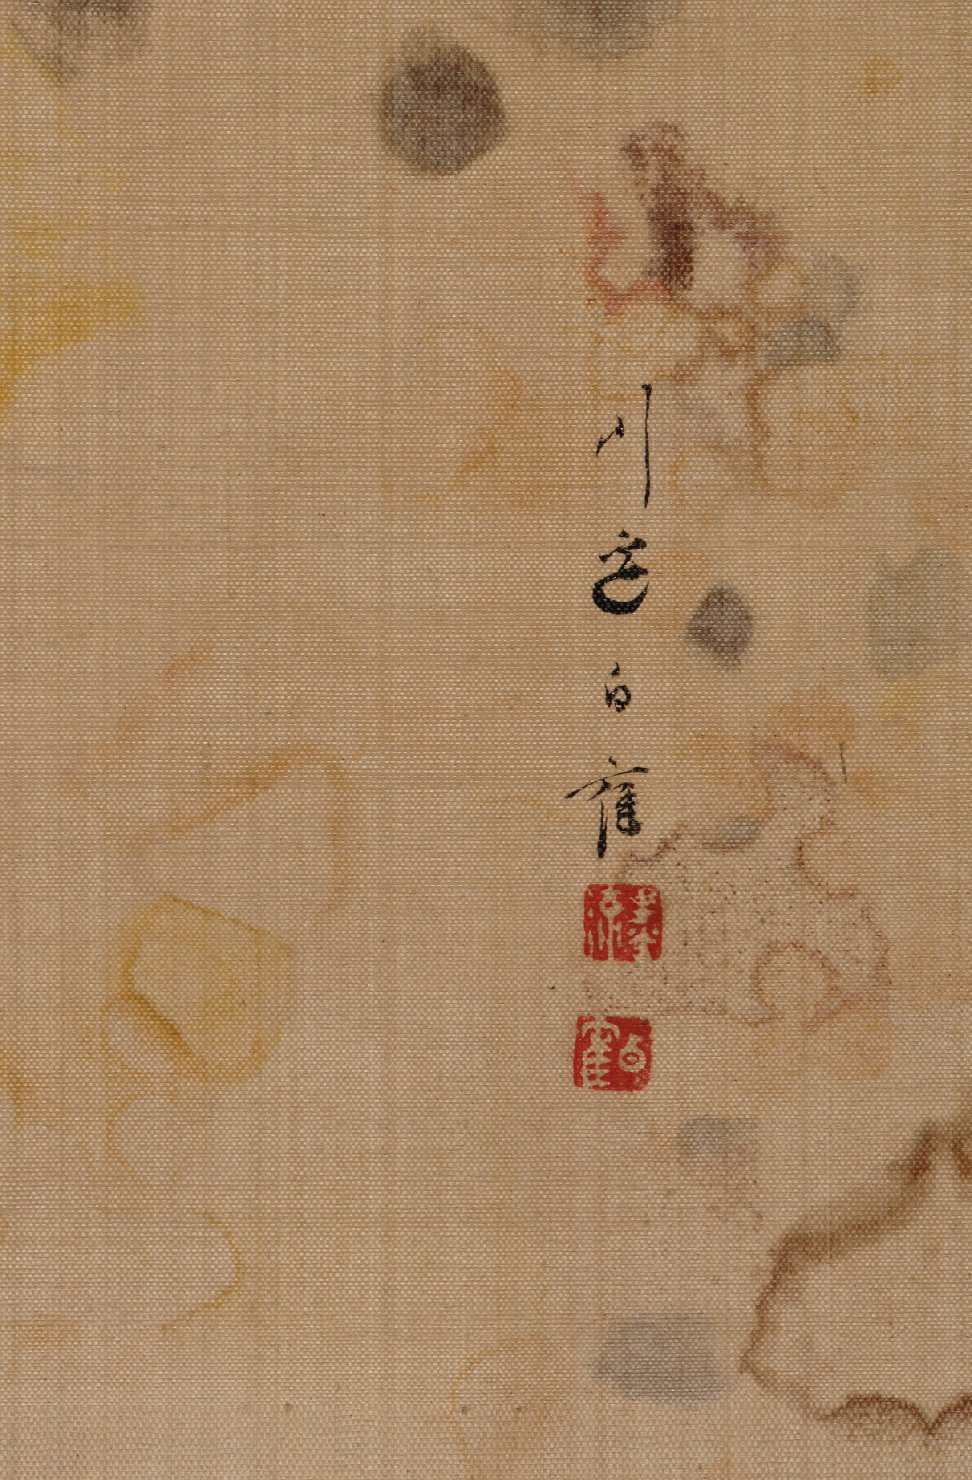 川邊白寉
白寉